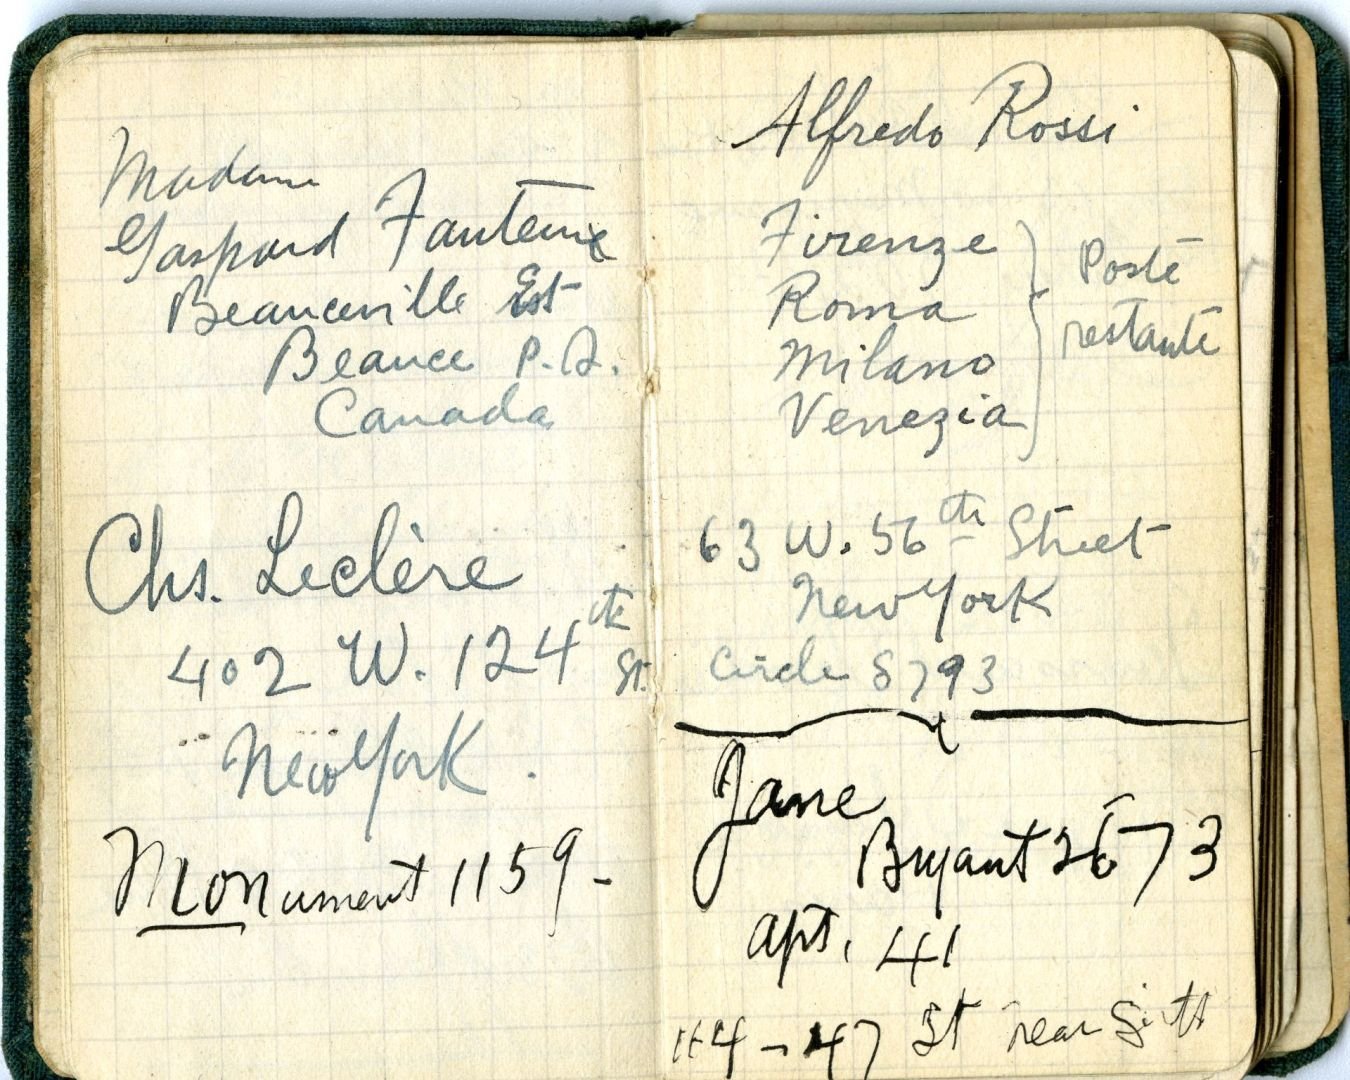 Madame
Gaspard Fanteux
Beauceville Est
Beauce P.Q.
Canada
Chs. Leclère
402 W. 124th St.
New York.
Monument 1159-
Alfredo Rossi
Firenze
Roma
Milano
Venezia
Poste
restante
63 W. 56th Street
New York
Circle 8793
Jane
Bryant 2673
apt. 41
114-47 St near Sixth